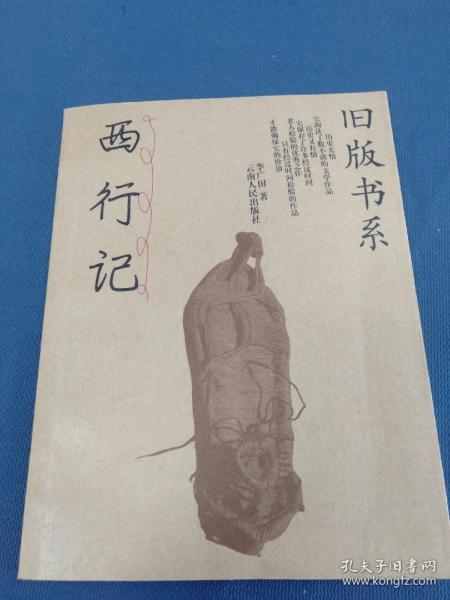 旧版书系
历史无情
它淘汰了数不清的文学作品
历史又有情
它保存了许多经过时间
老人检验的优秀之作
只有经过时间检验的作品
才能确保它的价值
李广田 著
云南人民出版社
西行记
孔夫子旧书网
www.kongfz.com